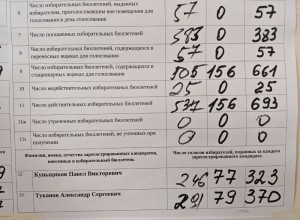 6 Число избирательных бюллетеней, выданных
избирателям, проголосовавшим вне помещения
для голосования в день голосования 57 0 57
7 Число погашенных избирательных бюллетеней 383 0 383
8 Число избирательных бюллетеней, содержащихся в
переносных ящиках для голосования 57 0 57
9 Число избирательных бюллетеней, содержащихся в
стационарных ящиках для голосования 505 156 661
10 Число недействительных избирательных бюллетеней 25 0 25
11 Число действительных избирательных бюллетеней 537 156 693
Число утраченных избирательных бюллетеней 0 0 0
Число избирательных бюллетеней, не учтенных при
получении 0 0 0
Фамилии, имена, отчества зарегистрированных кандидатов,
внесенных в избирательный бюллетень
Число голосов избирателей, поданных за каждого
зарегистрированного кандидата
12 Куньщиков Павел Викторович 246 77 323
13 Туканов Александр Сергеевич 291 79 370